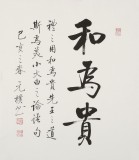 和為貴
禮之用和為貴先王之道
斯為美小大由之論語句
己亥之春